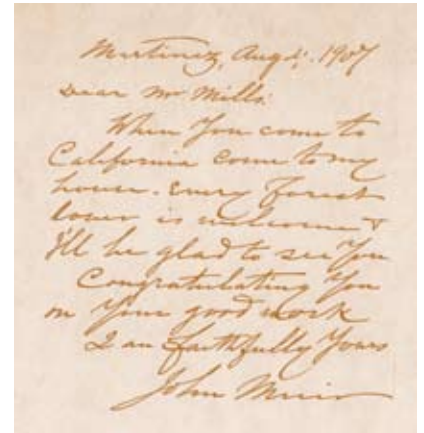 Martinez, Aug 4. 1907
Dear Mr Mills:
When You come to
California come to my
house. Every forest
lover is welcome &
I'll be glad to see You
Congratulating You
on Your good work
I am faithfully Yours
John Muir